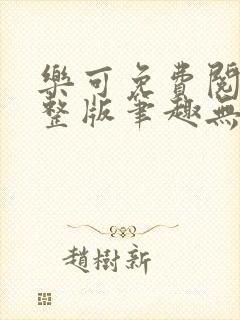 樂可免費閱
整版筆趣無
趙樹新